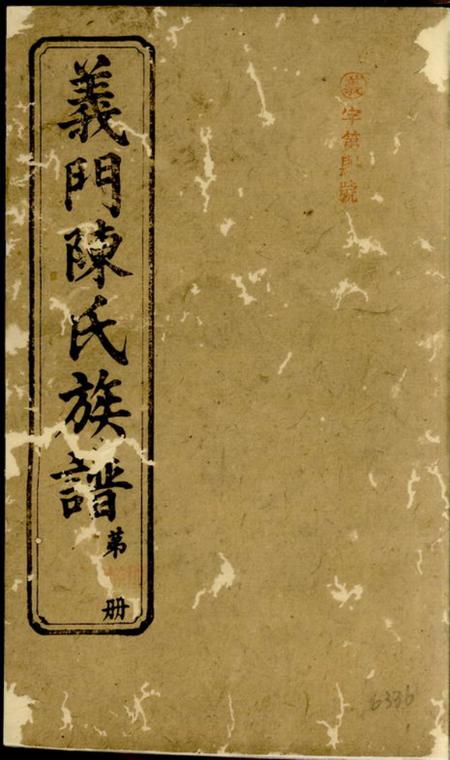 字第號
義門陳氏族譜
第 册
6336